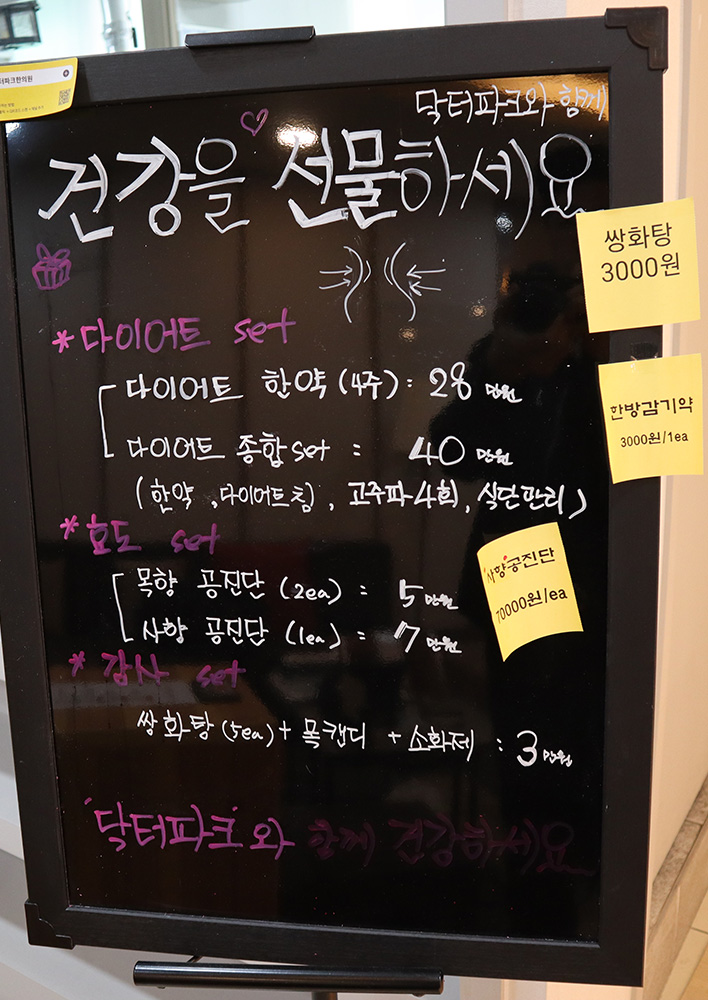 터파크한의원
닥터파크와 함께
건강을 선물하세요
쌍화탕
3000원
* 다이어트 set
다이어트 한약 (4주) : 28 만원
한방감기약
3000원/1ea
다이어트 종합set : 40 만원
(한약, 다이어트침, 고주파4회, 식단관리)
* 효도 set
사향공진단
70000원/ea
목향 공진단 (2ea) : 5 만원
사향 공진단 (1ea) : 7 만원
* 감사 set
쌍화탕(5ea) + 목캔디 + 소화제 : 3 만원
'닥터파크'와 함께 건강하세요